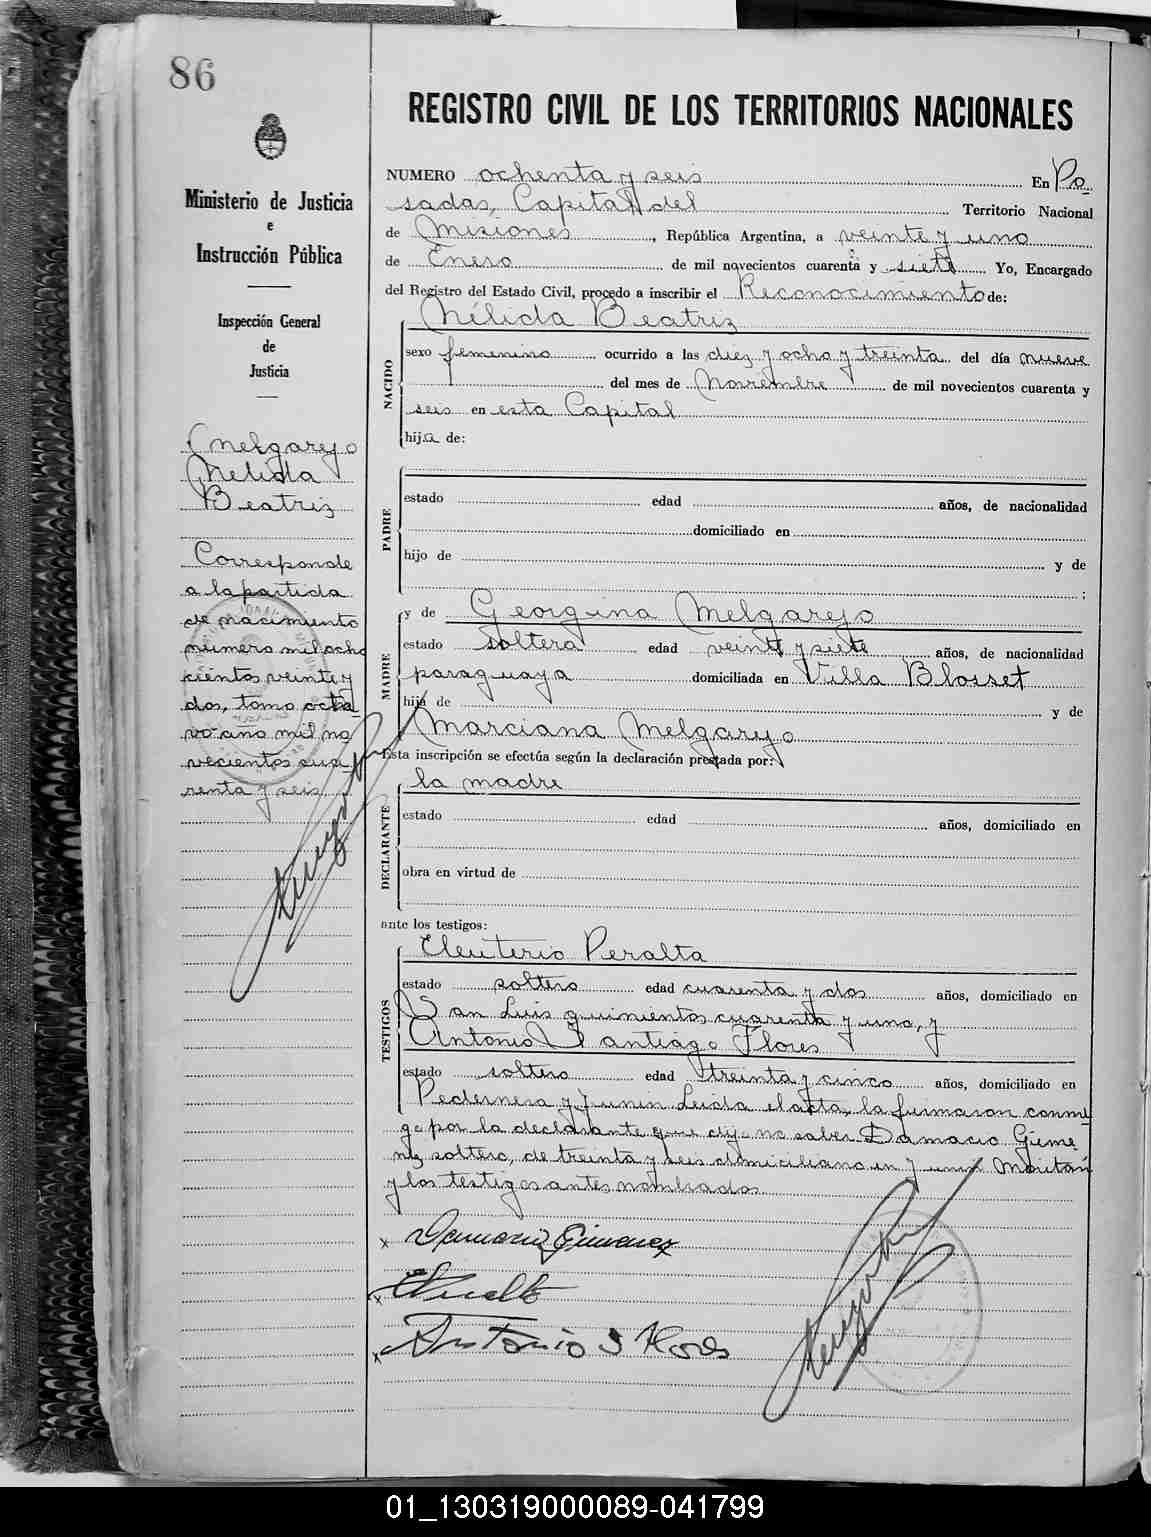 86
REGISTRO CIVIL DE LOS TERRITORIOS NACIONALES
Ministerio de Justicia
e
Instrucción Pública
Inspección General
de
Justicia
Melgarejo
Nelida
Beatriz
Corresponde
a la partida
de nacimiento
número mil ocho
cientos veinte y
dos, tomo octa
vo año mil no
vecientos cua
renta y seis
NUMERO ochenta y seis En Po
sadas, Capital del Territorio Nacional
de Misiones, República Argentina, a veinte y uno
de Enero de mil novecientos cuarenta y siete Yo, Encargado
del Registro del Estado Civil, procedo a inscribir el Reconocimiento de:
NACIDO
Nélida Beatriz
sexo femenino ocurrido a las diez y ocho y treinta del día nueve
del mes de Noviembre de mil novecientos cuarenta y
seis en esta Capital
hija de:
PADRE
estado edad años, de nacionalidad
domiciliado en
hijo de y de
;
MADRE
y de Georgina Melgarejo
estado soltera edad veinte y siete años, de nacionalidad
paraguaya domiciliada en Villa Blosset
hija de y de
Marciana Melgarejo
Esta inscripción se efectúa según la declaración prestada por:
DECLARANTE
la madre
estado edad años, domiciliado en
obra en virtud de
ante los testigos:
TESTIGOS
Eleuterio Peralta
estado soltero edad cuarenta y dos años, domiciliado en
San Luis quinientos cuarenta y uno, y
Antonio Santiago Flores
estado soltero edad treinta y cinco años, domiciliado en
Pedernera y Junin Leida el acta, la firmaron conmi
go por la declarante que dijo no saber Damacio Gime
nez soltero, de treinta y seis domiciliano en Junin
y los testigos antes nombrados
x Damacio Gimenez
x EPeralta
x Antonio S Flores
01_130319000089-041799